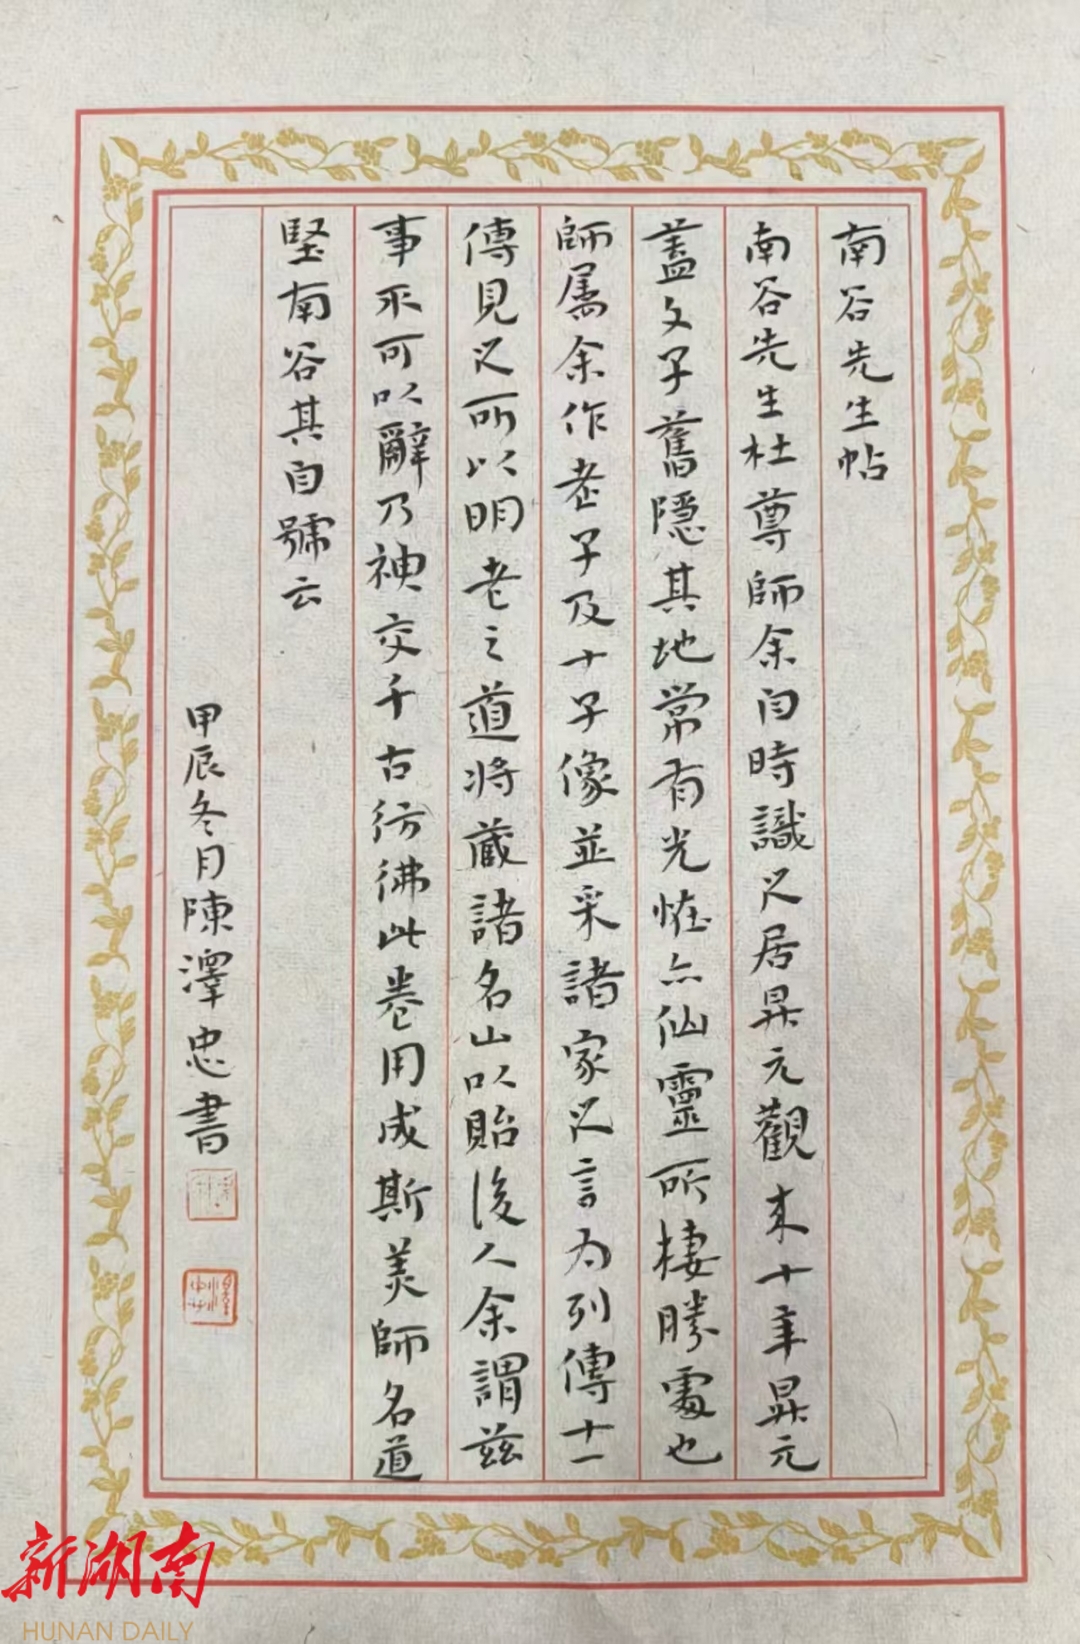 南谷先生帖
南谷先生杜尊師余自時識之居昇元觀来十年昇元
蓋文子舊隱其地常有光恠亦仙靈所棲勝處也
師属余作老子及十子像並采諸家之言为列傳十一
傳見之所以明老之道将蔵諸名山以貽後人余謂兹
事不可以辭乃神交千古彷彿此卷用成斯美師名道
堅南谷其自號云
甲辰冬月陳澤忠書
新湖南
HUNAN DAILY